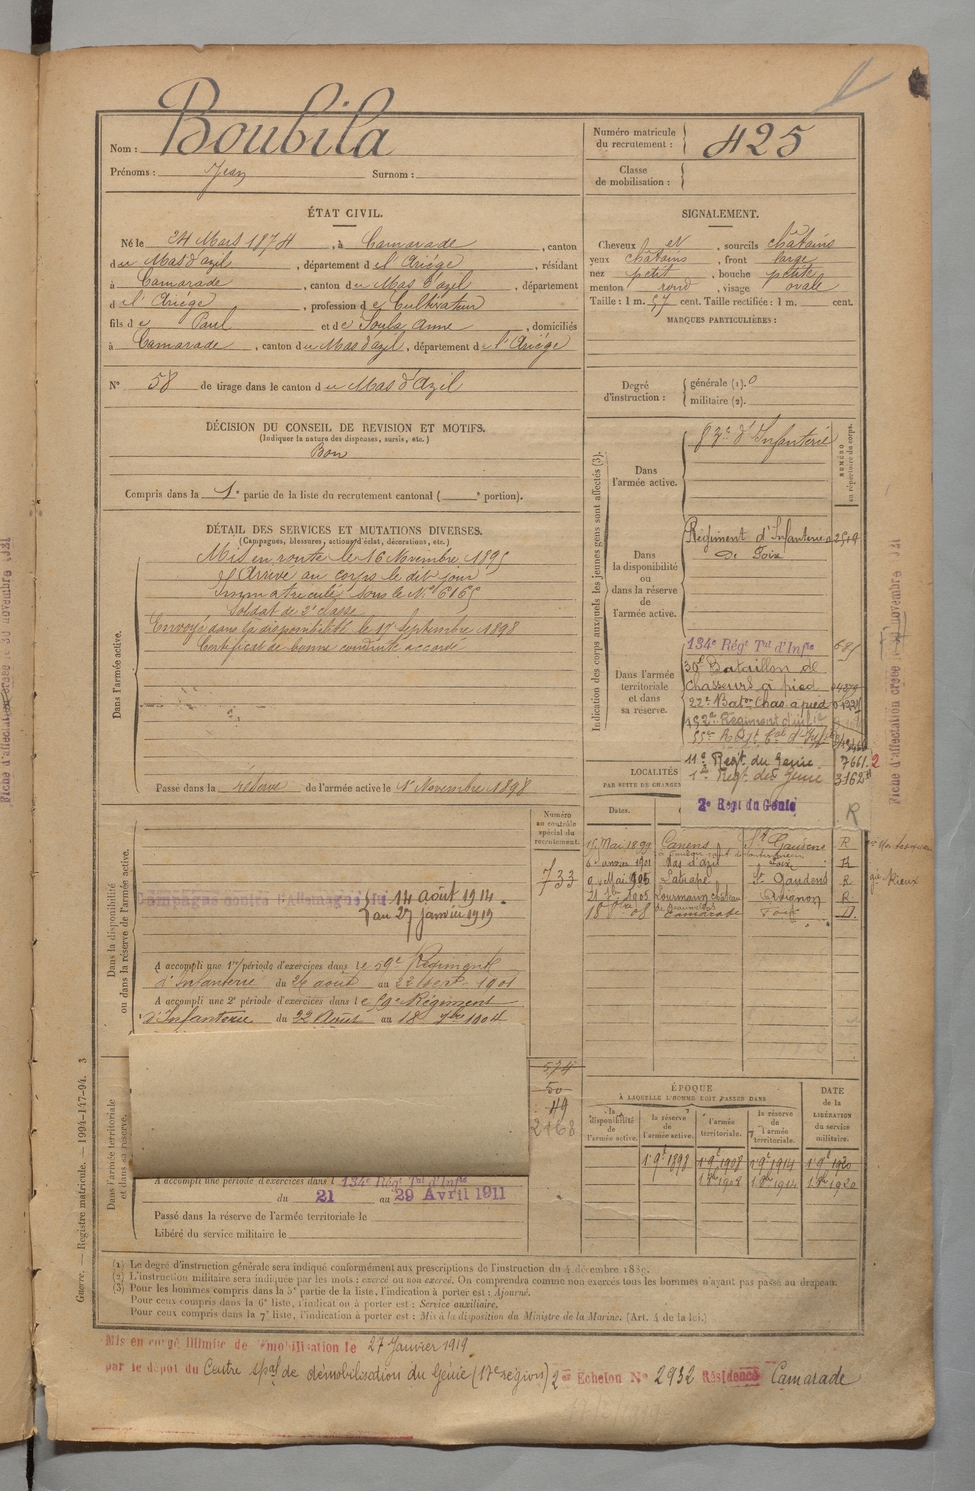 Nom : Boubila
Prénoms : Jean Surnom :
Numéro matricule du recrutement : 425
Classe de mobilisation :
ÉTAT CIVIL.
Né le 24 Mars 1874, à Camarade, canton
du Mas d'azil, département de l'Ariége, résidant
à Camarade, canton du Mas d'azil, département
d l'Ariége, profession de Cultivateur
fils de Paul et de Soula Anne, domiciliés
à Camarade, canton du Mas d'azil, département de l'Ariége
N° 58 de tirage dans le canton du Mas d'Azil
SIGNALEMENT.
Cheveux et, sourcils châtains
yeux châtains, front large
nez petit, bouche petite
menton rond, visage ovale
Taille : 1 m. 57 cent. Taille rectifiée : 1 m. cent.
MARQUES PARTICULIÈRES :
Degré d'instruction : générale (1). 0
militaire (2).
DÉCISION DU CONSEIL DE REVISION ET MOTIFS.
(Indiquer la nature des dispenses, sursis, etc.)
Bon
Compris dans la 1e partie de la liste du recrutement cantonal ( e portion).
DÉTAIL DES SERVICES ET MUTATIONS DIVERSES.
(Campagnes, blessures, actions d'éclat, décorations, etc.)
Dans l'armée active.
Mis en route le 16 Novembre 1895
Arrivé au corps le dit jour
Immatriculé sous le N° 6165
Soldat de 2e classe
Envoyé dans la disponibilité le 17 Septembre 1898
Certificat de bonne conduite accordé
Passé dans la réserve de l'armée active le 1er Novembre 1898
Indication des corps auxquels les jeunes gens sont affectés (3).
NUMÉRO au répertoire du corps.
Dans l'armée active.
d'Infanterie
Dans la disponibilité ou dans la réserve de l'armée active.
Régiment d'Infanterie
de Foix
Dans l'armée territoriale et dans sa réserve.
134e Régt Tal d'Infie
30e Bataillon de
Chasseurs à pied
22e Baton Chas à pied
11e Régt du Génie 7661
1er Régt du Génie 3162
2e Regt du Génie
R
LOCALITÉS
PAR SUITE DE CHANGE
Dates.
15 Mai 1899 Canens St Gaudens R
6 Janvier 1901 Mas d'azil Foix R
9 Mai 1905 Latrape St Gaudens R
1905 Lourmarin Avignon R
08 Camarade Foix D
Rieux
Dans la disponibilité ou dans la réserve de l'armée active.
Numéro au contrôle spécial du recrutement.
733
Campagne contre l'Allemagne du 14 août 1914.
au 27 janvier 1919
A accompli une 1re période d'exercices dans le 59e Régiment
d'Infanterie du 26 août au 22 Sept. 1901
A accompli une 2e période d'exercices dans le 59e Régiment
d'Infanterie du 22 Août au 18 7bre 1904
Dans l'armée territoriale et dans sa réserve.
574
50
49
2468
A accompli une période d'exercices dans l 134e Régt Tal d'Infie
du 21 au 29 Avril 1911
Passé dans la réserve de l'armée territoriale le
Libéré du service militaire le
ÉPOQUE
À LAQUELLE L'HOMME DOIT PASSER DANS
DATE de la LIBÉRATION du service militaire.
la disponibilité de l'armée active.
la réserve de l'armée active.
l'armée territoriale.
la réserve de l'armée territoriale.
1 9e 1898 1 9e 1908 1 9e 1914 1 9e 1920
1908 1914 1920
Guerre. — Registre matricule. — 1994-147-94. 3
(1) Le degré d'instruction générale sera indiqué conformément aux prescriptions de l'instruction du 4 décembre 1889.
(2) L'instruction militaire sera indiquée par les mots : exercé ou non exercé. On comprendra comme non exercés tous les hommes n'ayant pas passé au drapeau.
(3) Pour les hommes compris dans la 5e partie de la liste, l'indication à porter est : Ajourné.
Pour ceux compris dans la 6e liste, l'indication à porter est : Service auxiliaire.
Pour ceux compris dans la 7e liste, l'indication à porter est : Mis à la disposition du Ministre de la Marine. (Art. 4 de la loi.)
Mis en congé illimité de démobilisation le 27 Janvier 1919.
par le dépôt du Centre spal de démobilisation du Génie (17e région) 2me Echelon N° 2932 Résidence Camarade